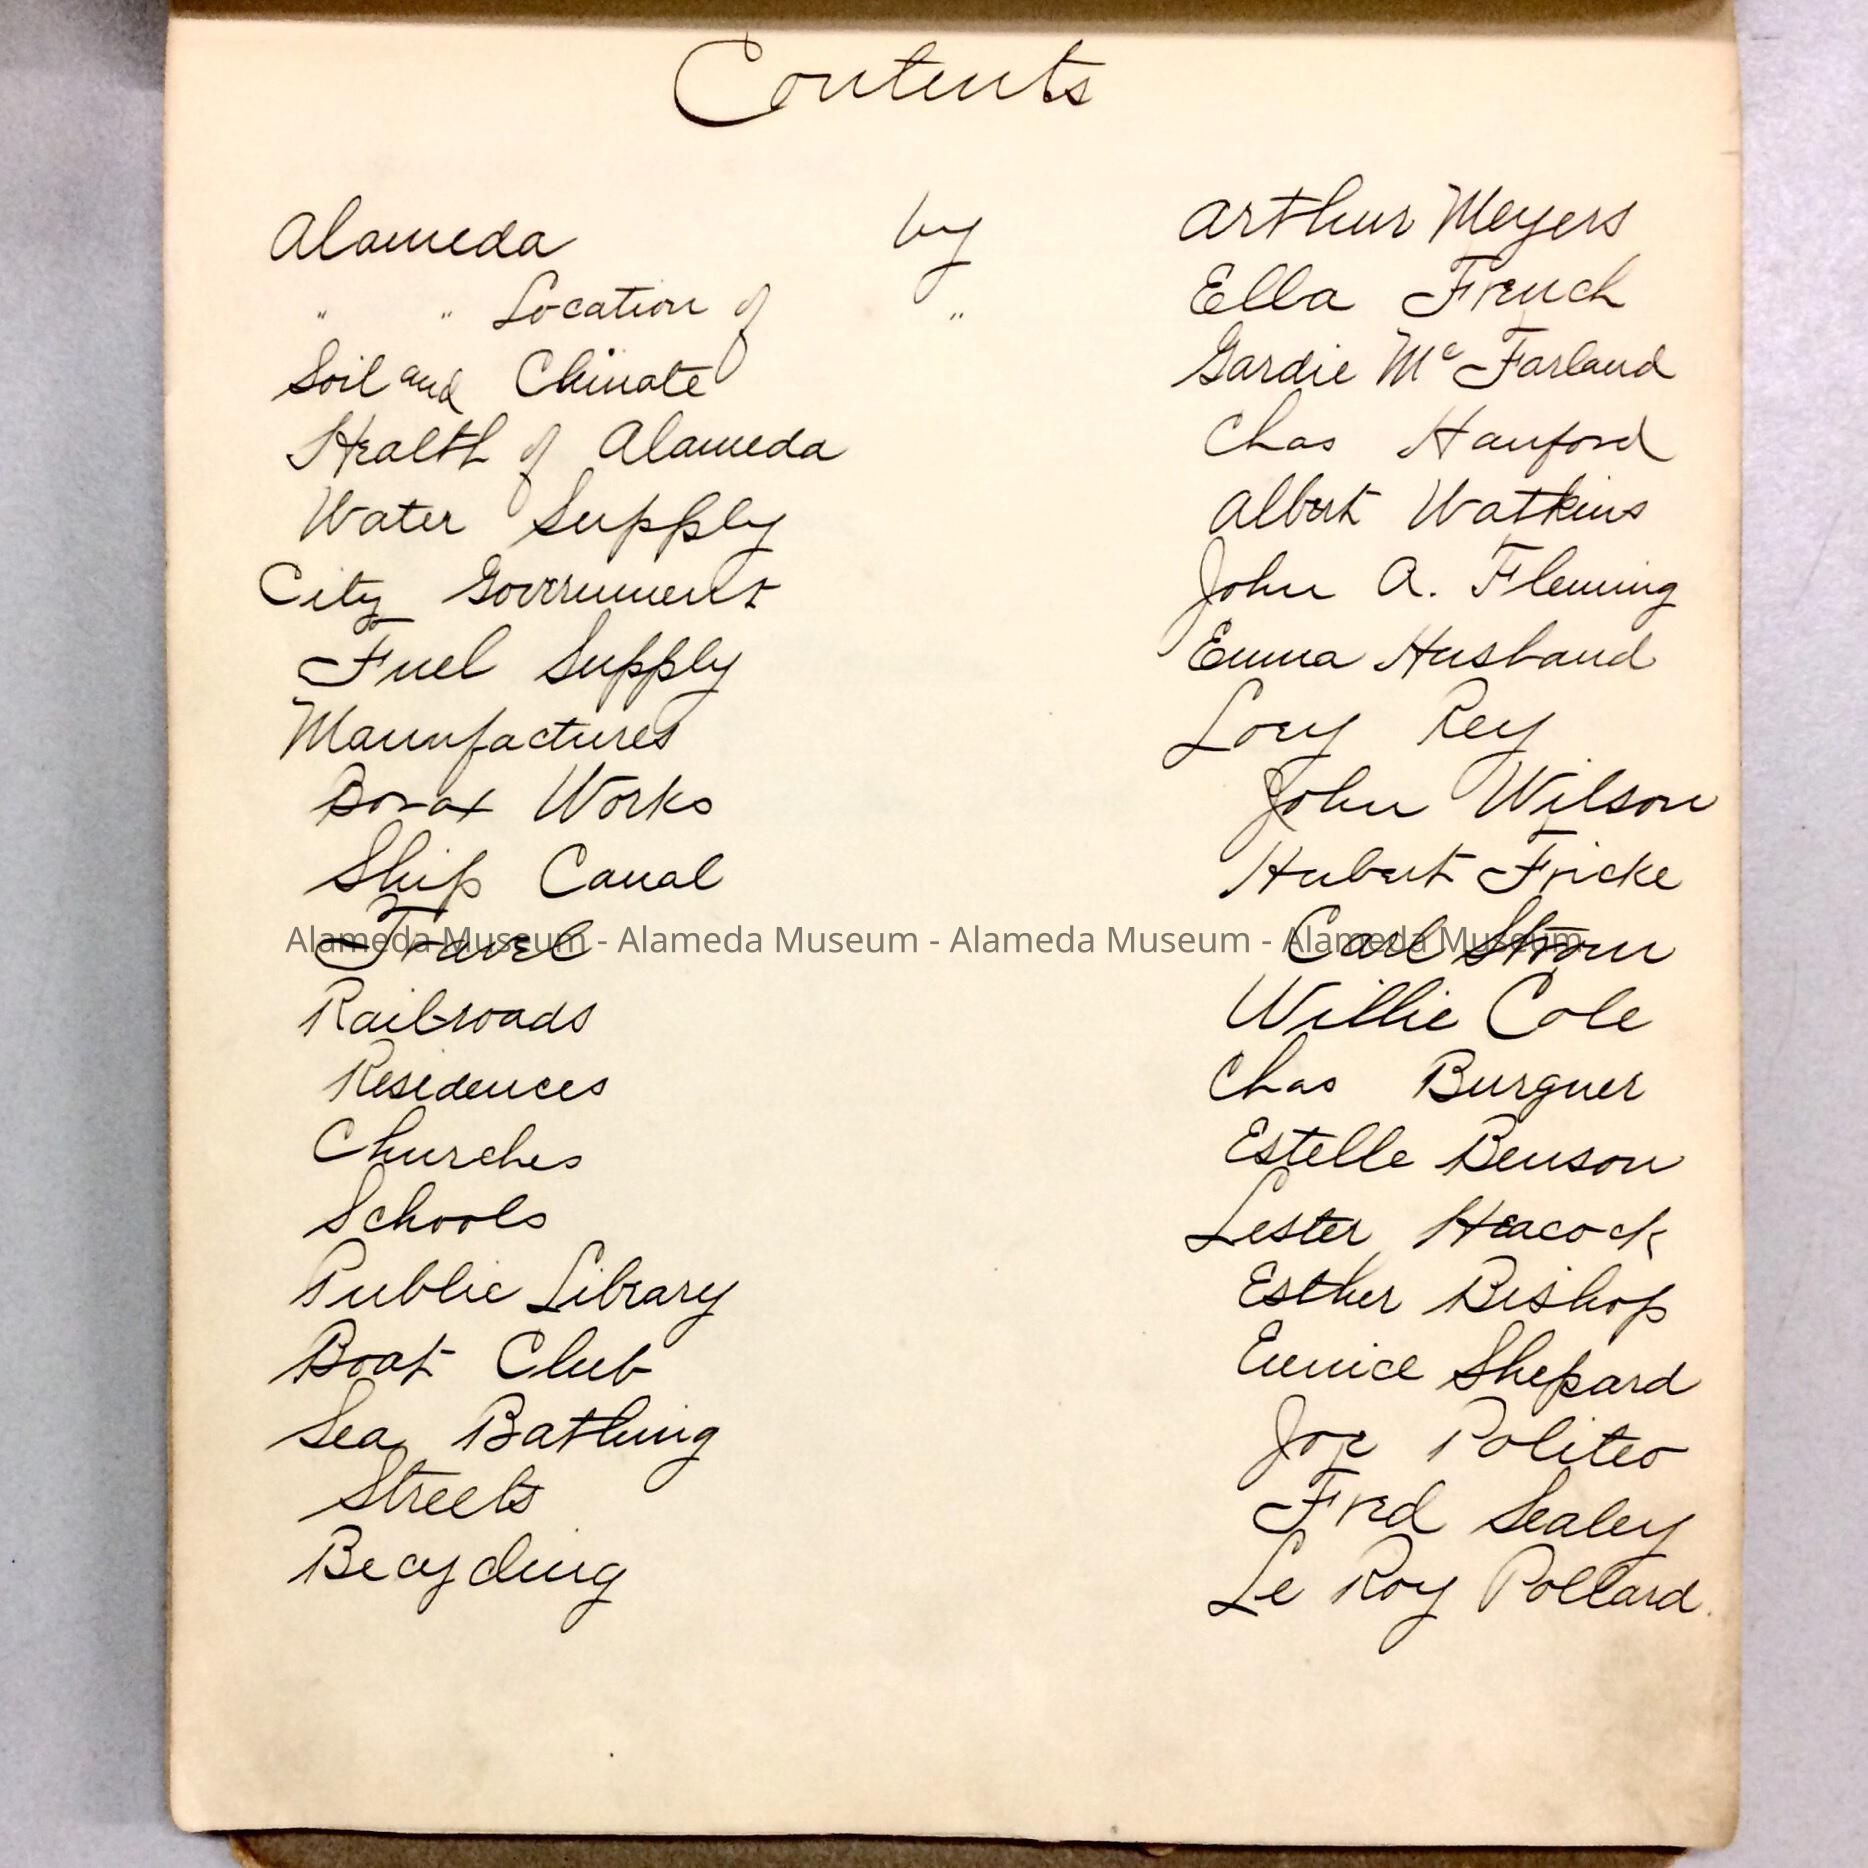 Contents
Alameda by Arthur Meyers
" " Location of " Ella French
Soil and Climate Gardie McFarland
Health of Alameda Chas Hanford
Water Supply Albert Watkins
City Government John A. Fleming
Fuel Supply Emma Husband
Manufactures Rey
Borax Works John Wilson
Ship Canal Hubert Fricke
Travel Carl Strom
Alameda Museum - Alameda Museum - Alameda Museum - Alameda Museum
Railroads Willie Cole
Residences Chas Burgner
Churches Estelle Benson
Schools Lester Heacock
Public Library Esther Bishop
Boat Club Eunice Shepard
Sea Bathing Joe Politeo
Streets Fred Sealey
Becycling Le Roy Pollard.